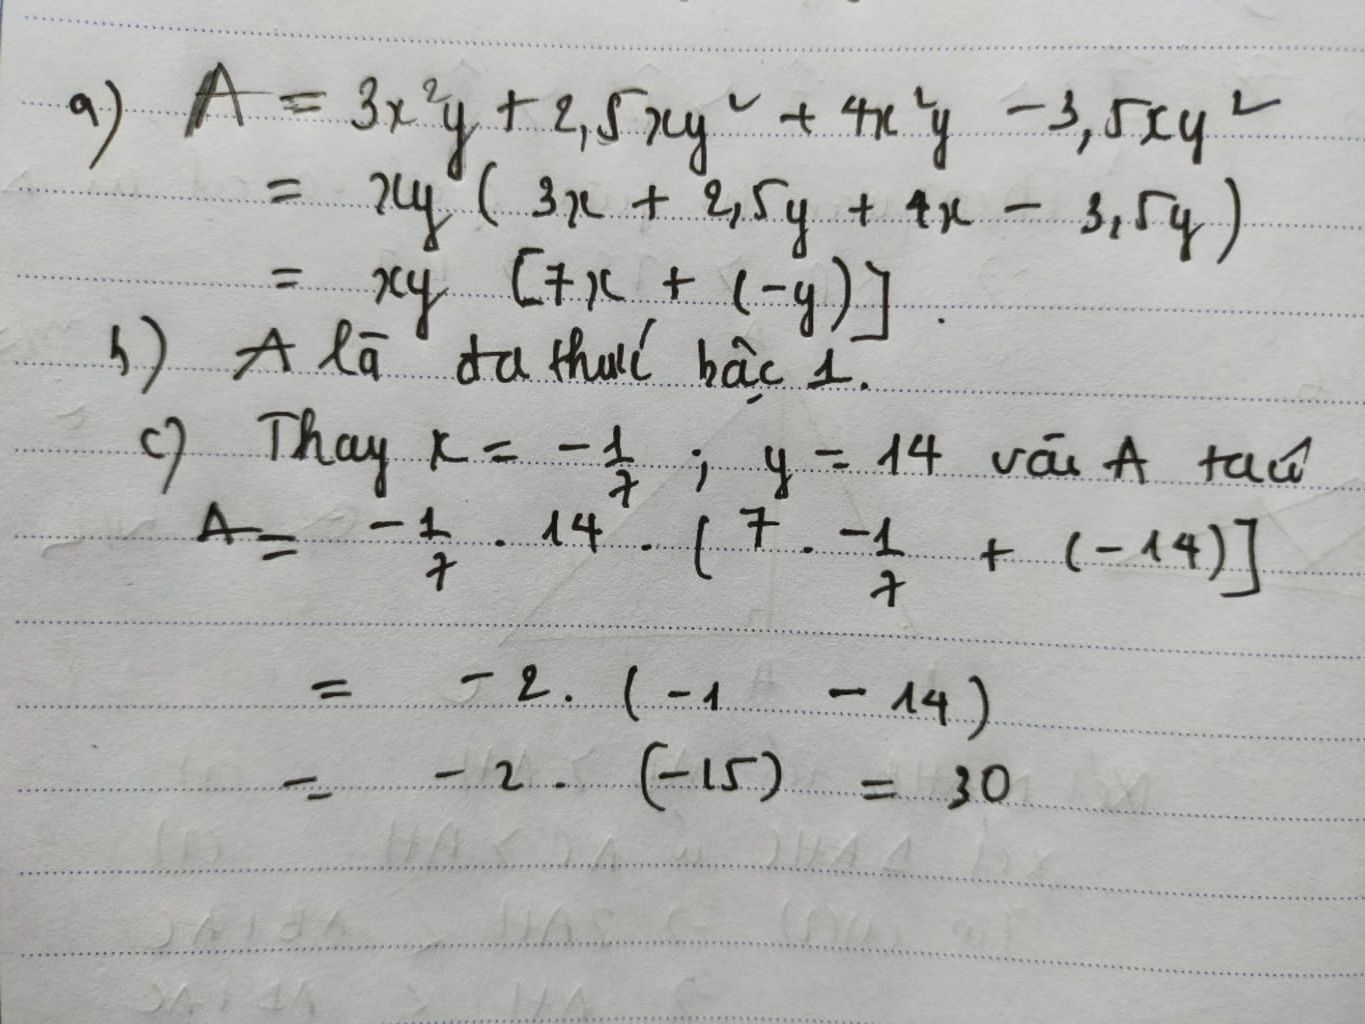 a) A = 3x²y + 2,5xy² + 4x²y - 3,5xy²
= xy ( 3x + 2,5y + 4x - 3,5y )
= xy [7x + (-y)] .
b) A là đa thức bậc 1.
c) Thay x = -1/7 ; y = 14 vào A ta có
A = -1/7 . 14 . [ 7 . -1/7 + (-14)]
= -2. (-1 - 14)
= -2 . (-15) = 30